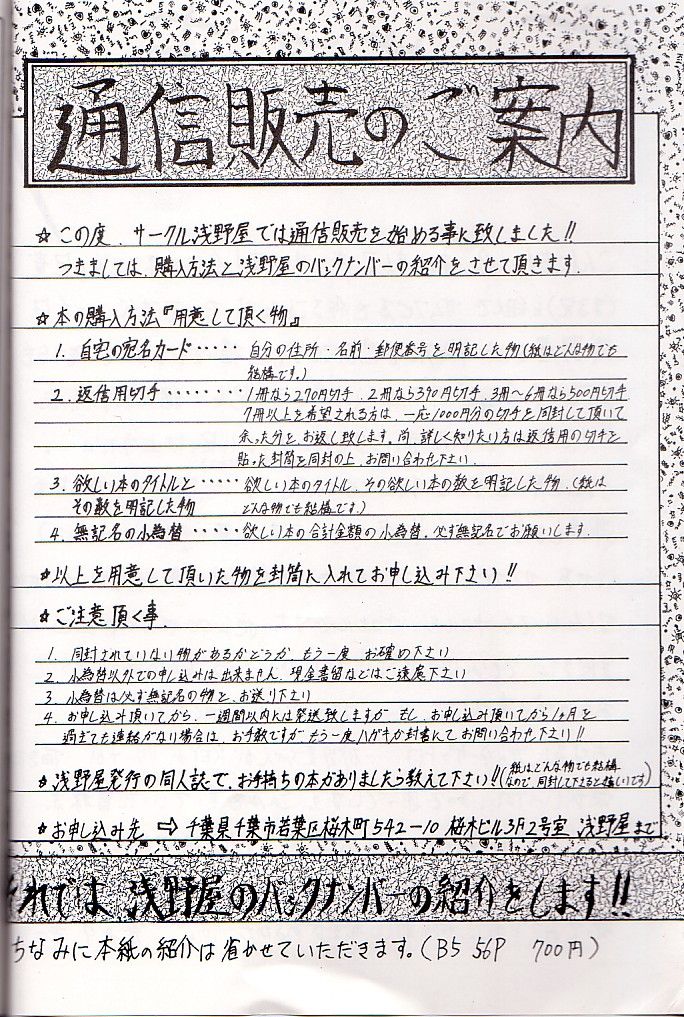 通信販売のご案内
☆この度、サークル浅野屋では通信販売を始める事に致しました!!
つきましては、購入方法と浅野屋のバックナンバーの紹介をさせて頂きます.
☆本の購入方法『用意して頂く物』
1. 自宅の宛名カード・・・・・ 自分の住所・名前・郵便番号を明記した物(紙はどんな物でも
結構です。)
2. 返信用切手・・・・・・・・ 1冊なら270円切手、2冊なら390円切手、3冊〜6冊なら500円切手
7冊以上を希望される方は、一応1000円分の切手を同封して頂いて
余った分を、お返し致します。尚、詳しく知りたい方は返信用の切手を
貼った封筒を同封の上、お問い合わせ下さい.
3. 欲しい本のタイトルと・・・・・ 欲しい本のタイトル、その欲しい本の数を明記した物.(紙は
その数を明記した物 どんな物でも結構です。)
4. 無記名の小為替・・・・・・ 欲しい本の合計金額の小為替。必ず無記名でお願いします.
☆以上を用意して頂いた物を封筒に入れてお申し込み下さい!!
☆ご注意頂く事.
1. 同封されていない物があるかどうか、もう一度、お確め下さい
2. 小為替以外での申し込みは出来ません、現金書留などはご遠慮下さい
3. 小為替は必ず無記名の物を、お送り下さい
4. お申し込み頂いてから、一週間以内には発送致しますが、もし、お申し込み頂いてから1ヶ月を
過ぎても連絡がない場合は、お手数ですが、もう一度ハガキか封書にてお問い合わせ下さい!!
☆浅野屋発行の同人誌で、お手持ちの本がありましたら教えて下さい!!(紙はどんな物でも結構
なので、同封して下さると嬉しいです)
☆お申し込み先 ⇨ 千葉県千葉市若葉区桜木町542-10 桜木ビル3F2号室 浅野屋まで
それでは、浅野屋のバックナンバーの紹介をします!!
ちなみに本紙の紹介は省かせていただきます。(B5 56P 700円)